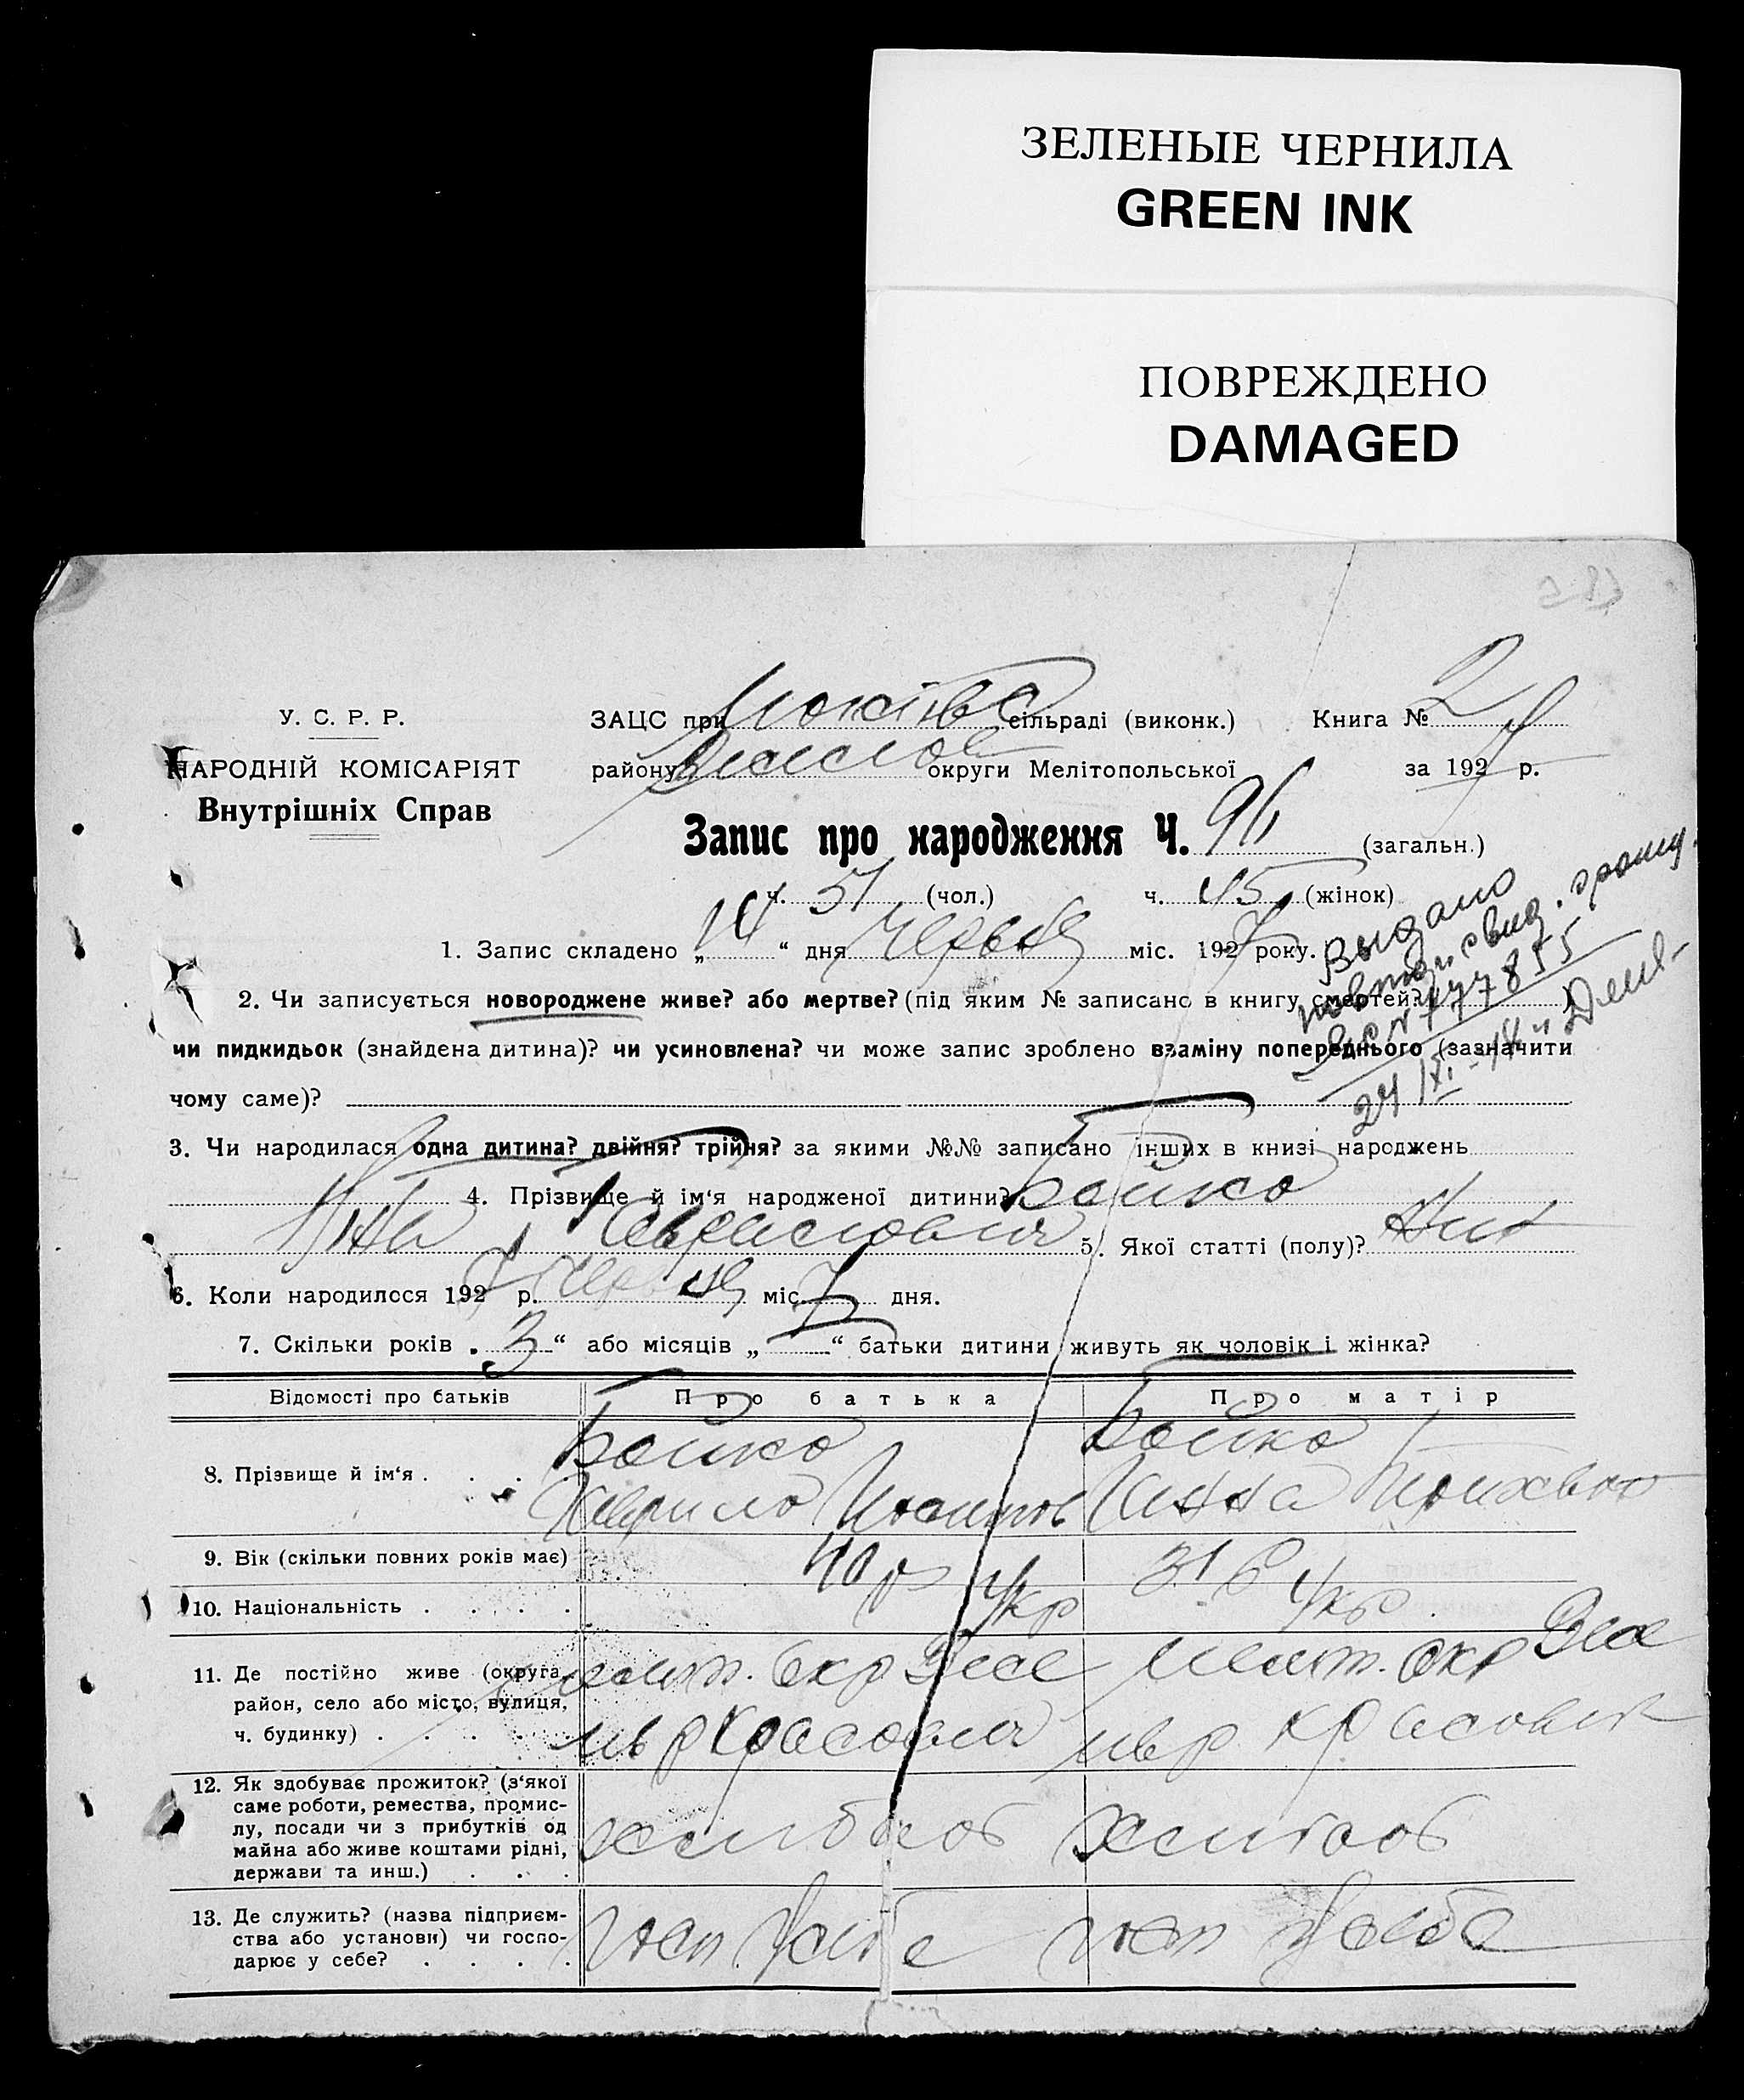 ЗЕЛЕНЫЕ ЧЕРНИЛА
GREEN INK
ПОВРЕЖДЕНО
DAMAGED
У. С. Р. Р.
НАРОДНІЙ КОМІСАРІЯТ
Внутрішніх Справ
ЗАЦС при сільраді (виконк.) Книга № 2
району округи Мелітопольської за 1927 р.
Запис про народження Ч. 96 (загальн.)
ч. 51 (чол.) ч. 45 (жінок)
1. Запис складено „14“ дня Червня міс. 1927 року.
Выдано
повторн. свид. о рожд.
777855
27/XI
2. Чи записується новороджене живе? або мертве? (під яким № записано в книгу смертей?)
чи пидкидьок (знайдена дитина)? чи усиновлена? чи може запис зроблено взаміну попереднього (зазначити
чому саме)?
3. Чи народилася одна дитина? двійня? трійня? за якими №№ записано інших в книзі народжень
4. Прізвище й ім‘я народженої дитини? Бойко
Ніна Гавриловна 5. Якої статті (полу)? жін
6. Коли народилося 1927 р. Червня міс. 7 дня.
7. Скільки років „3“ або місяців „ “ батьки дитини живуть як чоловік і жінка?
Відомості про батьків Про батька Про матір
8. Прізвище й ім‘я . . . Бойко Бойко
Гаврило Ганна
9. Вік (скільки повних років має) 40 р 31 р
10. Національність . . . . . Укр Укр
11. Де постійно живе (округа, Меліт. Окр Меліт. Окр
район, село або місто, вулиця,
ч. будинку) . . . . .
12. Як здобуває прожиток? (з‘якої
саме роботи, ремества, промис-
лу, посади чи з прибутків од хлібороб хлібороб
майна або живе коштами рідні,
держави та инш.) . . .
13. Де служить? (назва підприєм-
ства або установи) чи госпо-
дарює у себе? . . . .